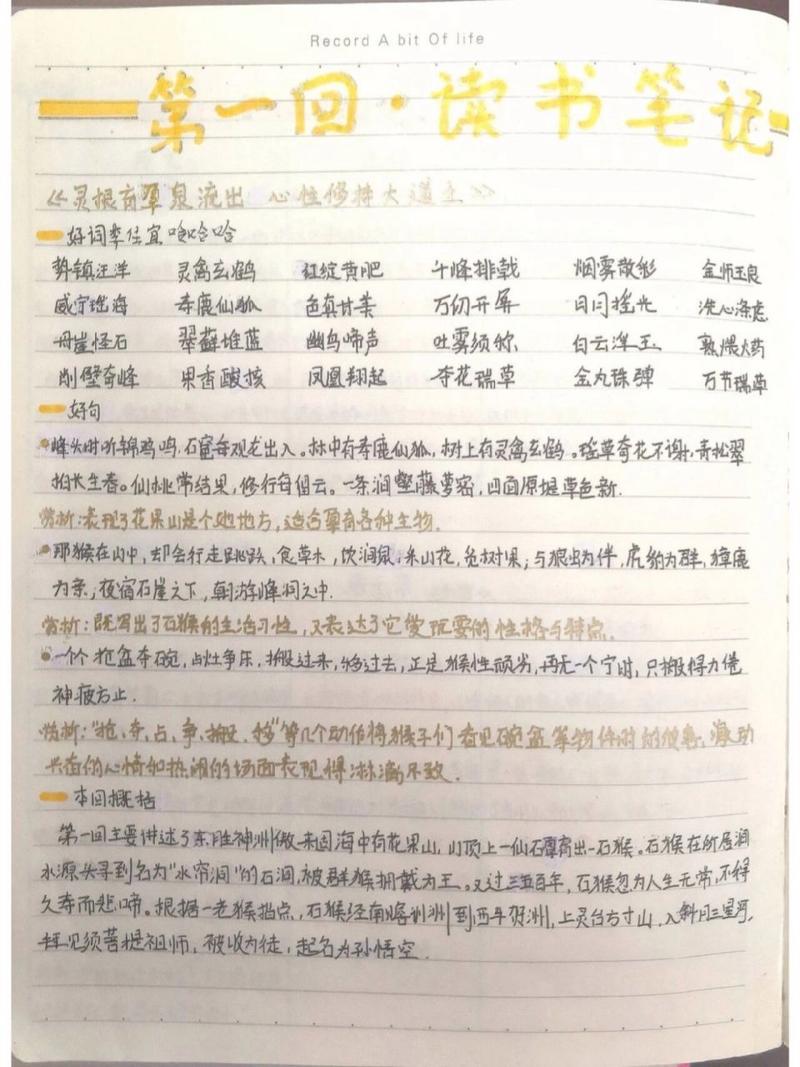 Record A bit Of life
第一回·读书笔记
《灵根育孕泉流出 心性修持大道生》
好词
势镇汪洋 灵禽玄鹤 红绽黄肥 千峰排戟 烟雾散彩 金师玉良
威宁瑶海 寿鹿仙狐 色真甘美 万仞开屏 日闪摇光 洗心涤虑
丹崖怪石 翠藓堆蓝 幽鸟啼声 吐雾须弥 白云浮玉 熟煨火药
削壁奇峰 果香酸核 凤凰翔起 奇花瑞草 金丸珠弹 万节瑞草
好句
峰头时听锦鸡鸣,石窟每观龙出入。林中有寿鹿仙狐,树上有灵禽玄鹤。瑶草奇花不谢,青松翠
柏长生春。仙桃常结果,修行每留云。一条涧壑藤萝密,四面原堤草色新.
赏析:表现了花果山是个地方,适合孕育各种生物.
那猴在山中,却会行走跳跃,食草木,饮涧泉,采山花,觅树果;与狼虫为伴,虎豹为群,獐鹿
为亲;夜宿石崖之下,朝游峰洞之中.
赏析:既写出了石猴的生活习性,又表达了它爱玩耍的性格与特点.
一个个抢盆夺碗,占灶争床,搬过来,移过去,正是猴性顽劣,再无一个宁时,只搬得力倦
神疲方止.
赏析:"抢、夺、占、争、搬、移"等几个动作将猴子们看见碗盆等物件时的 激动
兴奋的心情和热闹的场面表现得淋漓尽致.
本回概括
第一回主要讲述了东胜神洲傲来国海中有花果山,山顶上一仙石孕育出一石猴。石猴在所居涧
水源头寻到名为"水帘洞"的石洞,被群猴拥戴为王。又过三五百年,石猴忽为人生无常,不得
久寿而悲啼。根据一老猴指点,石猴经南赡部洲到西牛贺洲,上灵台方寸山,入斜月三星洞,
拜见须菩提祖师,被收为徒,起名为孙悟空.